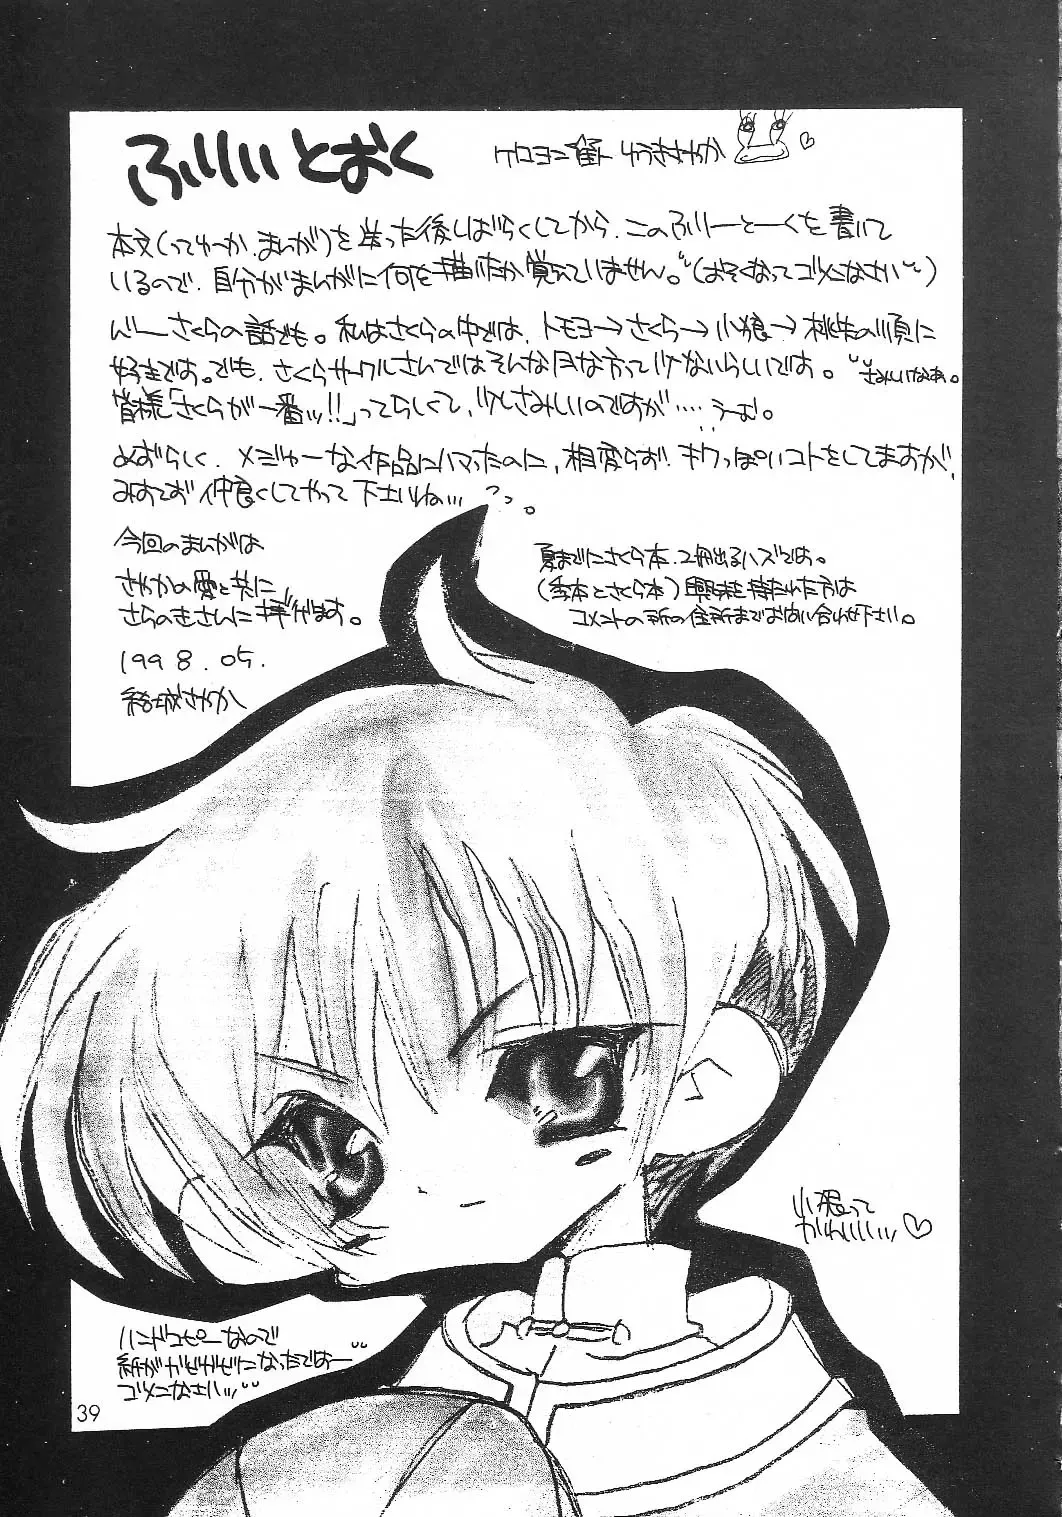 ふりぃとおく
ケロヨン雀ト ゆうきさやか
本文(ってゆーか、まんが)を送った後しばらくしてから、このふりーとーくを書いて
いるので、自分がまんがに何を描いたか覚えていません。(おそくなってゴメンなさい)
んーさくらの話でも。私はさくらの中では、トモヨ→さくら→小狼→桃矢の順に
好きです。でも、さくらサークルさんではそんな方って少ないらしいです。さみしいなあ。
皆様「さくらが一番ッ!!」ってらしくて、少しさみしいのですが…。うーむ。
めずらしく、メジャーな作品にハマったのに、相変らず、キワっぽいコトをしてますが、
みすてず仲良くしてやって下さいね…。
今回のまんがは
さやかの愛と共に
さらのきさんに捧げます。
1998.05.
結城さやか
夏までにさくら本、2冊出るハズです。
(李本とさくら本)興味を持たれた方は
コメントの所の住所までお問い合わせ下さい。
小狼って
かわいいいッ♡
ハンドコピーなので
紙がガビガビになったですー
ゴメンなさいッ
39